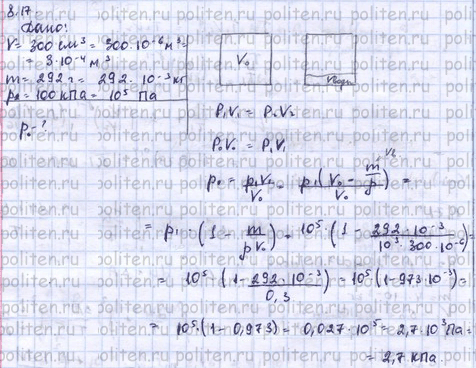 8.17
Дано:
V = 300 см³ = 300·10⁻⁶ м³ =
= 3·10⁻⁴ м³
m = 292 г = 292·10⁻³ кг
p₁ = 100 кПа = 10⁵ Па
p₀ - ?
V₀
Vводы
P₁V₁ = P₂V₂
P₀V₀ = P₁V₁
p₀ = p₁V₂/V₀ = p₁(V₀ - m/ρ)/V₀ =
V₂
= p₁·(1 - m/ρV₀) = 10⁵·(1 - 292·10⁻³/10³·300·10⁻⁶) =
= 10⁵·(1 - 292·10⁻³/0,3) = 10⁵·(1 - 973·10⁻³) =
= 10⁵·(1 - 0,973) = 0,027·10⁵ = 2,7·10³ Па =
= 2,7 кПа
politen.ru